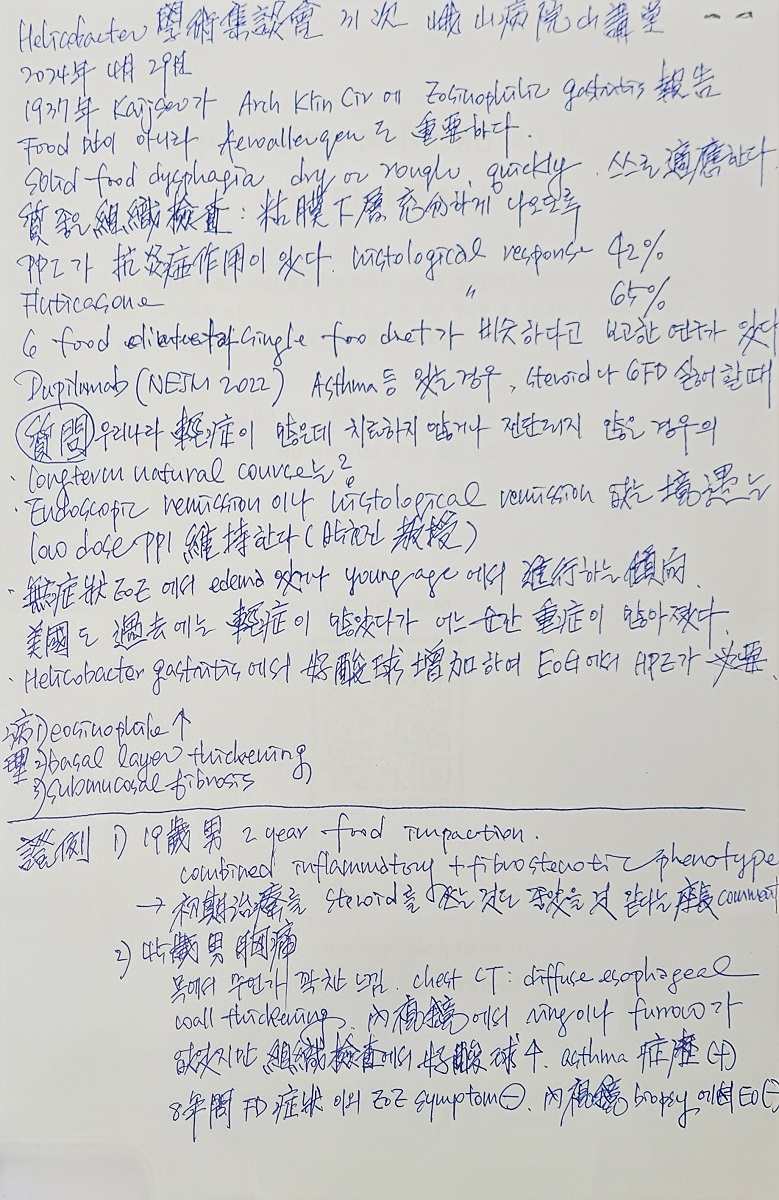 Helicobacter 學術集談會 31次 峨山病院 小講堂
2024年 4月 29日
1937年 Kaijser가 Arch Klin Cir에 Eosinophilic gastritis 報告
Food 만이 아니라 Aeroallergen도 重要하다.
Solid food dysphagia, dry or rough, quickly. 스스로 適應한다
質 좋은 組織檢査 : 粘膜下層 充分하게 나오도록
PPI가 抗炎症作用이 있다. histological response 42%
Fluticasone 〃 65%
6 food single food diet가 비슷하다고 보고한 연구가 있다
Dupilumab (NEJM 2022) Asthma 등 있는 경우, steroid나 6FD 실패할 때
質問 우리나라 輕症이 많은데 치료하지 않거나 진단되지 않은 경우의
· longterm natural course는?
· Endoscopic remission 이나 histological remission 없는 境遇는
low dose PPI 維持한다 (教授)
· 無症狀 EoE에서 edema 있거나 young age에서 進行하는 傾向.
美國도 過去에는 輕症이 많았다가 어느 순간 重症이 많아졌다.
· Helicobacter gastritis에서 好酸球 增加하여 EoG에서 必要.
病理 1) eosinophile ↑
2) basal layer thickening
3) submucosal fibrosis
證例 1) 19歲 男 2 year food impaction.
combined inflammatory + fibrostenotic phenotype
→ 初期治療를 steroid를 쓰는 것도 좋았을 것 같다는 座長 comment
2) 45歲 男 胸痛
목에서 무언가 꽉찬 느낌. chest CT : diffuse esophageal
wall thickening. 內視鏡에서 ring이나 furrow가
없었지만 組織檢査에서 好酸球 ↑. asthma 症歷 (+)
8年間 FD 症狀 이외 EoE symptom ⊖. 內視鏡 biopsy 에서 EO (-)